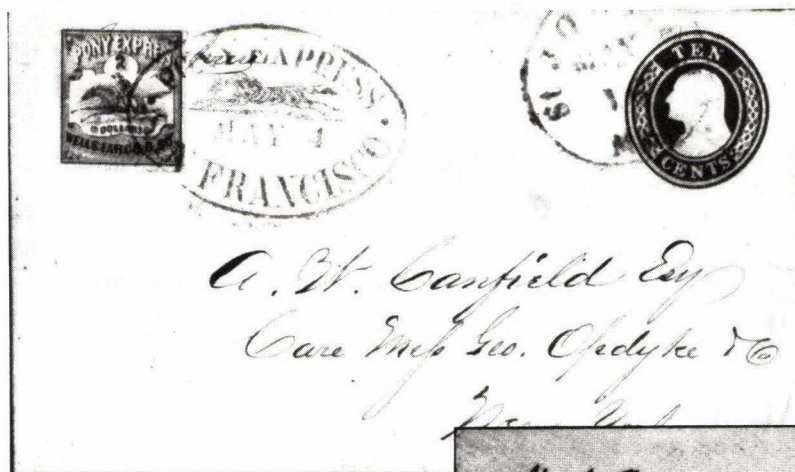 PONY EXPRE
2
DOLLARS
WELLS FARGO & CO
EXPRESS
MAY 4
FRANCISCO.
ST JO
MAY
TEN
CENTS
A. W. Canfield Esq
Care Mess Geo. Opdyke & Co
New York